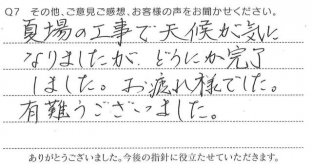 Q7 その他、ご意見ご感想、お客様の声をお聞かせください。
夏場の工事で天候が気に
なりましたが、どうにか完了
しました。お疲れ様でした。
有難うございました。
ありがとうございました。今後の指針に役立たせていただきます。